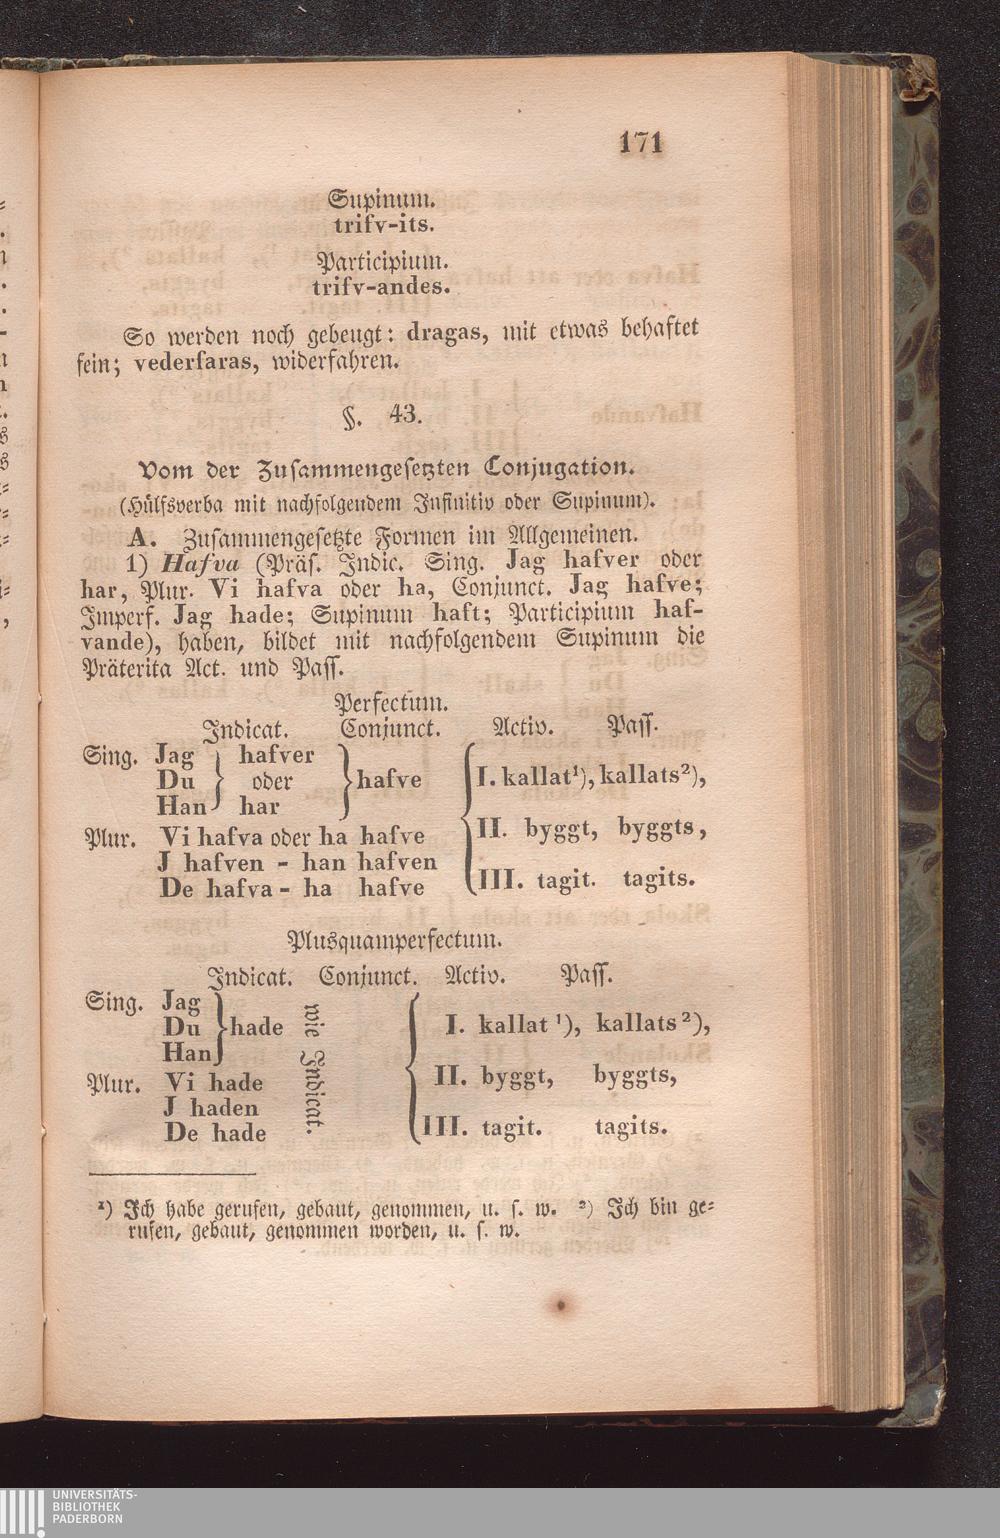 171
Supinum.
trifv-its.
Participium.
trifv-andes.
So werden noch gebeugt: dragas, mit etwas behaftet
sein; vederfaras, widerfahren.
§. 43.
Vom der Zusammengesetzten Conjugation.
(Hülfsverba mit nachfolgendem Infinitiv oder Supinum).
A. Zusammengesetzte Formen im Allgemeinen.
1) Hafva (Präs. Indic. Sing. Jag hafver oder
har, Plur. Vi hafva oder ha, Conjunct. Jag hafve;
Imperf. Jag hade; Supinum haft; Participium haf-
vande), haben, bildet mit nachfolgendem Supinum die
Präterita Act. und Pass.
Perfectum.
Indicat. Conjunct. Activ. Pass.
Sing. Jag } hafver } { 
Du } oder } hafve { I. kallat¹), kallats²),
Han } har }
Plur. Vi hafva oder ha hafve { II. byggt, byggts,
J hafven - han hafven
De hafva - ha hafve { III. tagit. tagits.
Plusquamperfectum.
Indicat. Conjunct. Activ. Pass.
Sing. Jag }
Du } hade wie Indicat. { I. kallat¹), kallats²),
Han }
Plur. Vi hade { II. byggt, byggts,
J haden
De hade { III. tagit. tagits.
¹) Ich habe gerufen, gebaut, genommen, u. s. w. ²) Ich bin ge-
rufen, gebaut, genommen worden, u. s. w.
UNIVERSITÄTS-
BIBLIOTHEK
PADERBORN